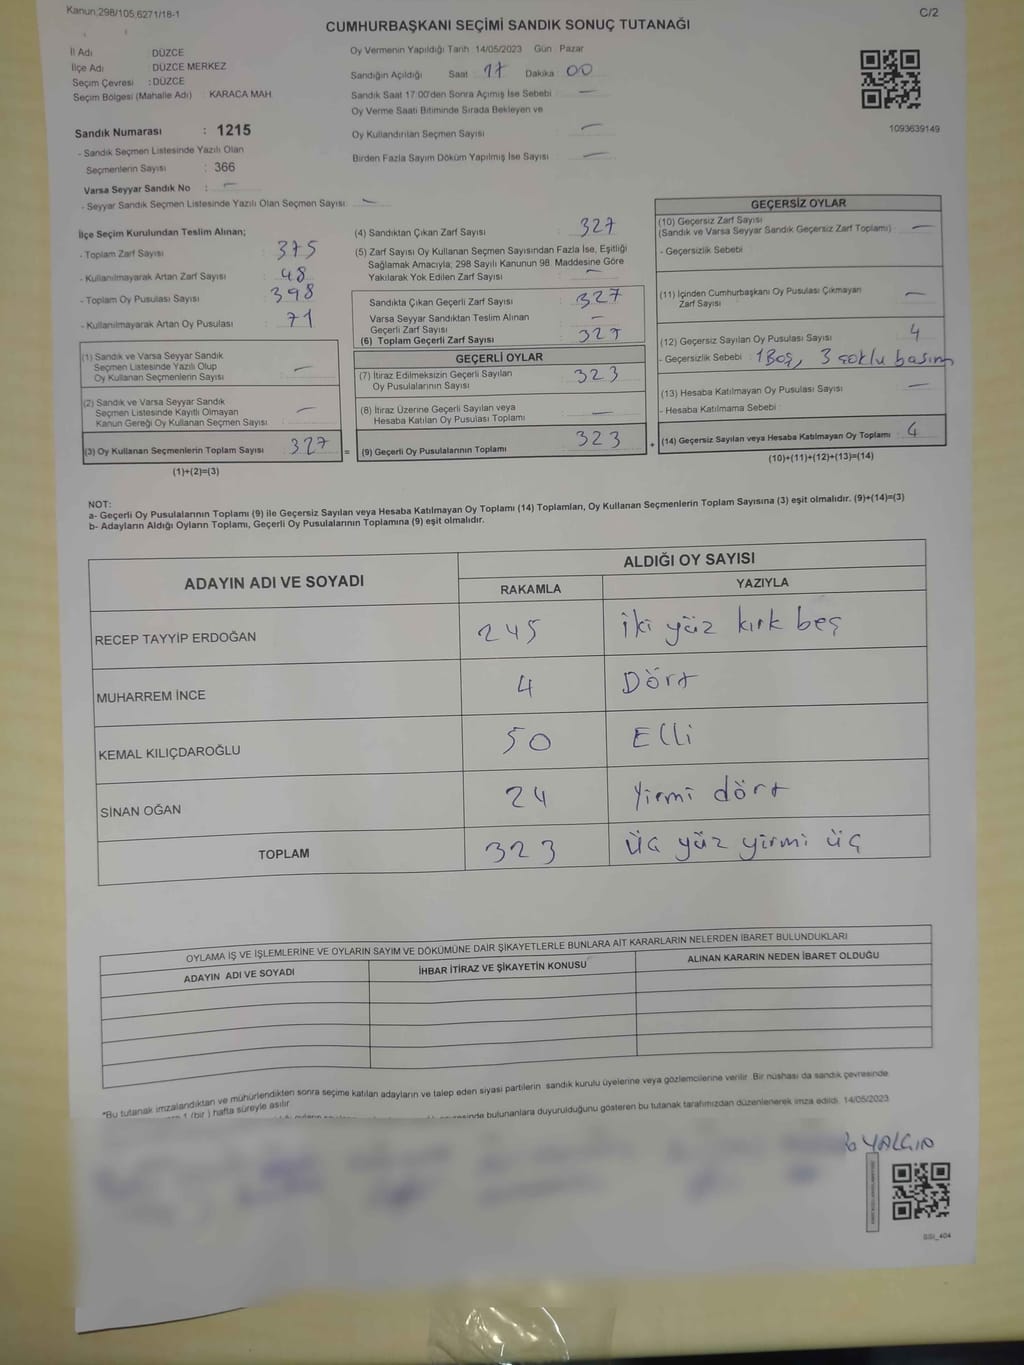 Kanun,298/105,6271/18-1
C/2
CUMHURBAŞKANI SEÇİMİ SANDIK SONUÇ TUTANAĞI
İl Adı : DÜZCE
İlçe Adı : DÜZCE MERKEZ
Seçim Çevresi : DÜZCE
Seçim Bölgesi (Mahalle Adı) : KARACA MAH.
Sandık Numarası : 1215
- Sandık Seçmen Listesinde Yazılı Olan
Seçmenlerin Sayısı : 366
Varsa Seyyar Sandık No : –
- Seyyar Sandık Seçmen Listesinde Yazılı Olan Seçmen Sayısı: –
Oy Vermenin Yapıldığı Tarih 14/05/2023 Gün : Pazar
Sandığın Açıldığı Saat : 17 Dakika : 00
Sandık Saat 17:00'den Sonra Açımış İse Sebebi : –
Oy Verme Saati Bitiminde Sırada Bekleyen ve
Oy Kullandırılan Seçmen Sayısı : –
Birden Fazla Sayım Döküm Yapılmış İse Sayısı : –
1093639149
İlçe Seçim Kurulundan Teslim Alınan;
- Toplam Zarf Sayısı : 375
- Kullanılmayarak Artan Zarf Sayısı : 48
- Toplam Oy Pusulası Sayısı : 398
- Kullanılmayarak Artan Oy Pusulası : 71
(1) Sandık ve Varsa Seyyar Sandık
Seçmen Listesinde Yazılı Olup
Oy Kullanan Seçmenlerin Sayısı : –
(2) Sandık ve Varsa Seyyar Sandık
Seçmen Listesinde Kayıtlı Olmayan
Kanun Gereği Oy Kullanan Seçmen Sayısı : –
(3) Oy Kullanan Seçmenlerin Toplam Sayısı : 327
(1)+(2)=(3)
(4) Sandıktan Çıkan Zarf Sayısı : 327
(5) Zarf Sayısı Oy Kullanan Seçmen Sayısından Fazla İse, Eşitliği
Sağlamak Amacıyla; 298 Sayılı Kanunun 98. Maddesine Göre
Yakılarak Yok Edilen Zarf Sayısı : –
Sandıkta Çıkan Geçerli Zarf Sayısı : 327
Varsa Seyyar Sandıktan Teslim Alınan
Geçerli Zarf Sayısı : –
(6) Toplam Geçerli Zarf Sayısı : 327
GEÇERLİ OYLAR
(7) İtiraz Edilmeksizin Geçerli Sayılan
Oy Pusulalarının Sayısı : 323
(8) İtiraz Üzerine Geçerli Sayılan veya
Hesaba Katılan Oy Pusulası Toplamı : –
= (9) Geçerli Oy Pusulalarının Toplamı : 323 +
GEÇERSİZ OYLAR
(10) Geçersiz Zarf Sayısı
(Sandık ve Varsa Seyyar Sandık Geçersiz Zarf Toplamı) : –
- Geçersizlik Sebebi :
(11) İçinden Cumhurbaşkanı Oy Pusulası Çıkmayan
Zarf Sayısı : –
(12) Geçersiz Sayılan Oy Pusulası Sayısı : 4
- Geçersizlik Sebebi : 1 Boş, 3 çoklu basım
(13) Hesaba Katılmayan Oy Pusulası Sayısı : –
- Hesaba Katılmama Sebebi :
(14) Geçersiz Sayılan veya Hesaba Katılmayan Oy Toplamı : 4
(10)+(11)+(12)+(13)=(14)
NOT:
a- Geçerli Oy Pusulalarının Toplamı (9) ile Geçersiz Sayılan veya Hesaba Katılmayan Oy Toplamı (14) Toplamları, Oy Kullanan Seçmenlerin Toplam Sayısına (3) eşit olmalıdır. (9)+(14)=(3)
b- Adayların Aldığı Oyların Toplamı, Geçerli Oy Pusulalarının Toplamına (9) eşit olmalıdır.
ADAYIN ADI VE SOYADI
ALDIĞI OY SAYISI
RAKAMLA YAZIYLA
RECEP TAYYİP ERDOĞAN 245 iki yüz kırk beş
MUHARREM İNCE 4 Dört
KEMAL KILIÇDAROĞLU 50 Elli
SİNAN OĞAN 24 Yirmi dört
TOPLAM 323 üç yüz yirmi üç
OYLAMA İŞ VE İŞLEMLERİNE VE OYLARIN SAYIM VE DÖKÜMÜNE DAİR ŞİKAYETLERLE BUNLARA AİT KARARLARIN NELERDEN İBARET BULUNDUKLARI
ADAYIN ADI VE SOYADI İHBAR İTİRAZ VE ŞİKAYETİN KONUSU ALINAN KARARIN NEDEN İBARET OLDUĞU
*Bu tutanak imzalandıktan ve mühürlendikten sonra seçime katılan adayların ve talep eden siyasi partilerin sandık kurulu üyelerine veya gözlemcilerine verilir. Bir nüshası da sandık çevresinde
1 (bir) hafta süreyle asılır.
bulunanlara duyurulduğunu gösteren bu tutanak tarafımızdan düzenlenerek imza edildi. 14/05/2023
YALÇIN
SSI_404